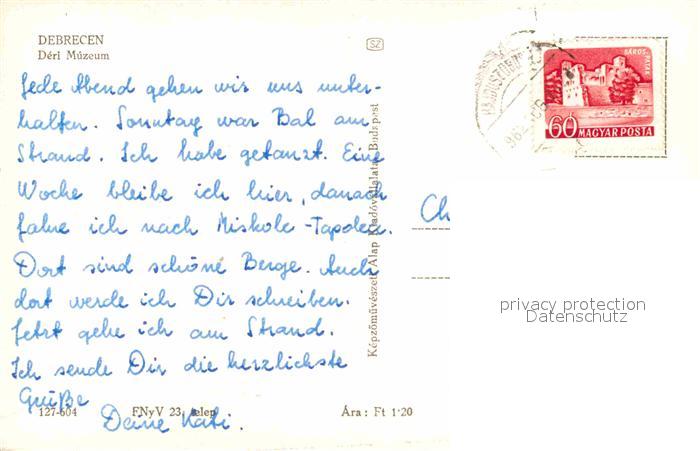 DEBRECEN
Déri Múzeum
SZ
Jede Abend gehen wir uns unter-
halten. Sonntag war Bal am
Strand. Ich habe getanzt. Eine
Woche bleibe ich hier, danach
fahre ich nach Miskolc-Tapolca.
Dort sind schöne Berge. Auch
dort werde ich Dir schreiben.
Jetzt gehe ich am Strand.
Ich sende Dir die herzlichste
Grüße
Deine Kati.
127-604 FNyV 23. telep Ára: Ft 1·20
Képzőművészeti Alap Kiadóvállalata, Budapest
SÁROS-
PATAK
60 MAGYAR POSTA
962
Ch
privacy protection
Datenschutz